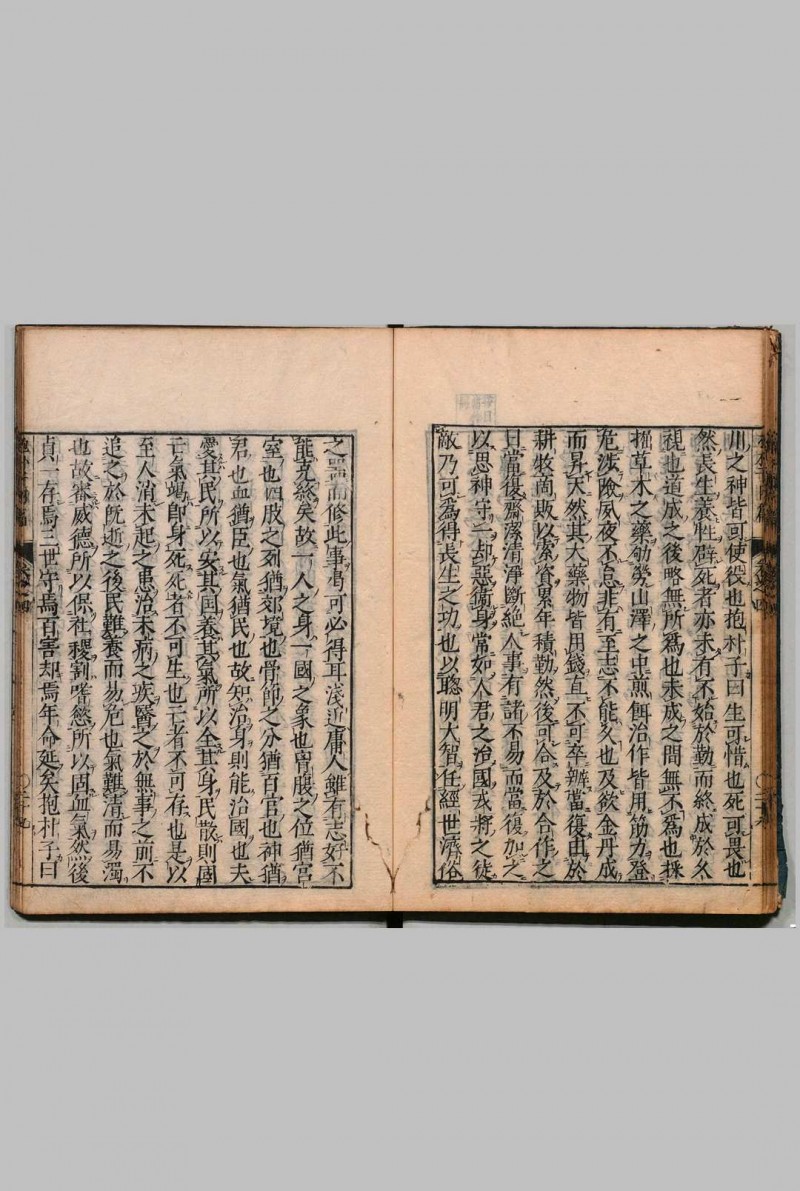 川之神皆可使役也抱朴子曰生可惜也死可畏也
然長生養性辟死者亦未有不始於勤而終成於久
視也道成之後略無所為也未成之間無不為也採
掘草木之藥劬勞山澤之中煎餌治作皆用筋力登
危涉險夙夜不怠非有至志不能久也及欲金丹成
而昇天然其大藥物皆用錢直不可卒辨當復由於
耕牧商販以索資累年積勤然後可合及於合作之
日當復齋潔清淨斷絕人事有諸不易而當復加之
以思神守一却惡衞身常如人君之治國戎將之待
敵乃可為得長生之功也以聰明大智任經世濟俗
之器而修此事乃可必得耳淺近庸人雖有志好不
能克終矣故一人之身一國之象也胷腹之位猶宮
室也四肢之列猶郊境也骨節之分猶百官也神猶
君也血猶臣也氣猶民也故知治身則能治國也夫
愛其民所以安其国養其氣所以全其身民散則國
亡氣竭即身死死者不可生也亡者不可存也是以
至人消未起之患治未病之疾醫之於無事之前不
追之於既逝之後民難養而易危也氣難清而易濁
也故審威德所以保社稷割嗜慾所以固血氣然後
貞一存焉三世守焉百害却焉年命延矣抱朴子曰